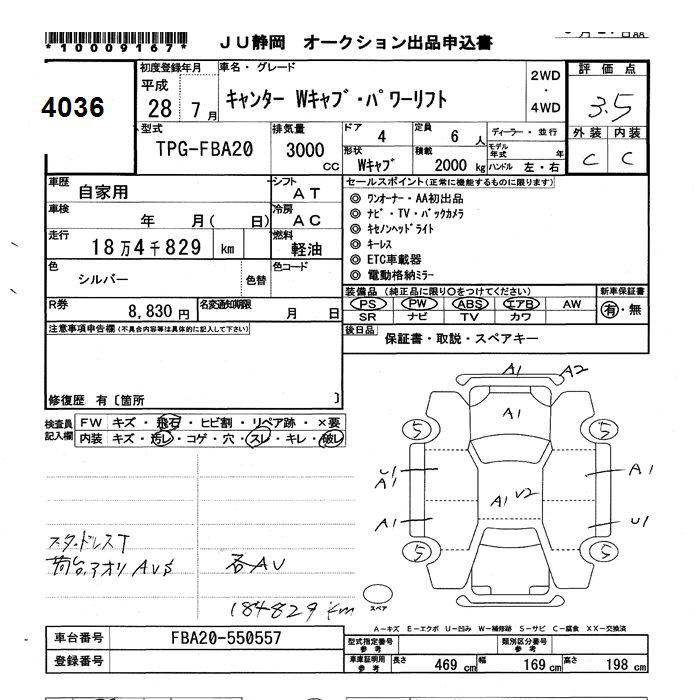 *10009167*
JU静岡 オークション出品申込書
4036
初度登録年月
平成
28 7 月
車名・グレード
キャンター Wキャブ・パワーリフト
2WD
・
4WD
評 価 点
3.5
外装 内装
C C
型式
TPG-FBA20
排気量
3000 CC
ドア 4
定員 6 人
ディーラー・並行
形状 Wキャブ
積載 2000 kg
モデル年式 年
ハンドル 左・右
車歴 自家用
シフト AT
車検 年 月( 日)
冷房 AC
走行 18万4千829 km
燃料 軽油
色 シルバー
色替
色コード
R券 8,830 円
名変通知期限 月 日
セールスポイント(正常に機能するものに限ります)
◎ ワンオーナー・AA初出品
◎ ナビ・TV・バックカメラ
◎ キセノンヘッドライト
◎ キーレス
◎ ETC車載器
◎ 電動格納ミラー
装備品(純正品に限り○をつけてください)
PS PW ABS エアB AW
SR ナビ TV カワ
新車保証書
有・無
後日品 保証書・取説・スペアキー
注意事項申告欄(不具合内容等は具体的に記入して下さい)
修復歴 有〔箇所 〕
検査員記入欄
FW キズ・飛石・ヒビ割・リペア跡・×要
内装 キズ・汚レ・コゲ・穴・スレ・キレ・破レ
A1 A2
A1
5 5
U1
A1 A1
A1 U2
A1 U1
5 5
スペア
スタッドレスT
荷台.アオリ AVS 各AU
184829 km
A-キズ E-エクボ U-凹み W-補修跡 S-サビ C-腐食 XX-交換済
車台番号 FBA20-550557
登録番号
型式指定番号 参考
類別区分番号 参考
車庫証明用 参考
長さ 469 cm 幅 169 cm 高さ 198 cm